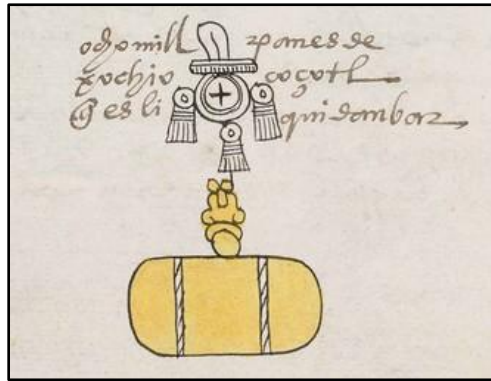 ocho mill panes de
xochio coçotl
q̃ es li quidanbar